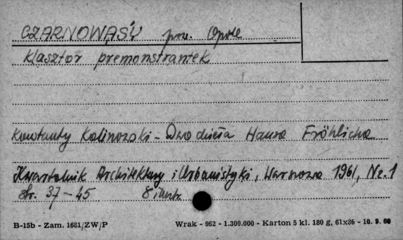 CZARNOWĄSY pow. Opole
klasztor premonstrantek
Konstanty Kalinowski - Dwa dzieła Hansa Fröhlicha
Kwartalnik Architektury i Urbanistyki, Warszawa 1961, Nr. 1
Str. 37-45 8 ilustr.
B-15b - Zam. 1661/ZW/P Wrak - 962 - 1.300.000 - Karton 5 kl. 180 g, 61x86 - 10. 9. 60